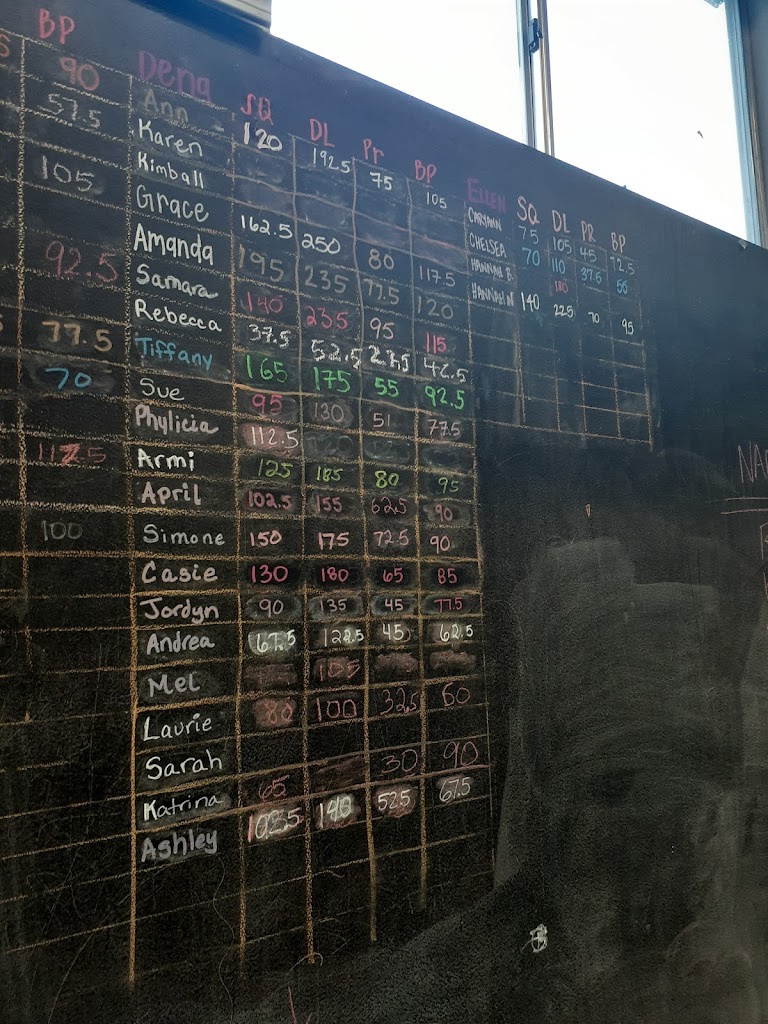 BP
90
57.5
105
92.5
77.5
70
112.5
100
Dena SQ DL Pr BP
Ann 120 192.5 75 105
Karen
Kimball
Grace 162.5 250 80 117.5
Amanda 195 235 77.5 120
Samara 140 235 95 115
Rebecca 37.5 52.5 27.5 42.5
Tiffany 165 175 55 92.5
Sue 95 130 51 77.5
Phylicia 112.5
Armi 125 185 80 95
April 102.5 155 62.5 90
Simone 150 175 72.5 90
Casie 130 180 65 85
Jordyn 90 135 45 77.5
Andrea 67.5 122.5 45 62.5
Mel 105
Laurie 80 100 32.5 60
Sarah
Katrina 65 30 90
Ashley 102.5 140 52.5 67.5
Ellen SQ DL PR BP
CARYANN 75 105 45 72.5
CHELSEA 70 110 37.5 50
HANNAH B
HANNAH N 140 225 70 95